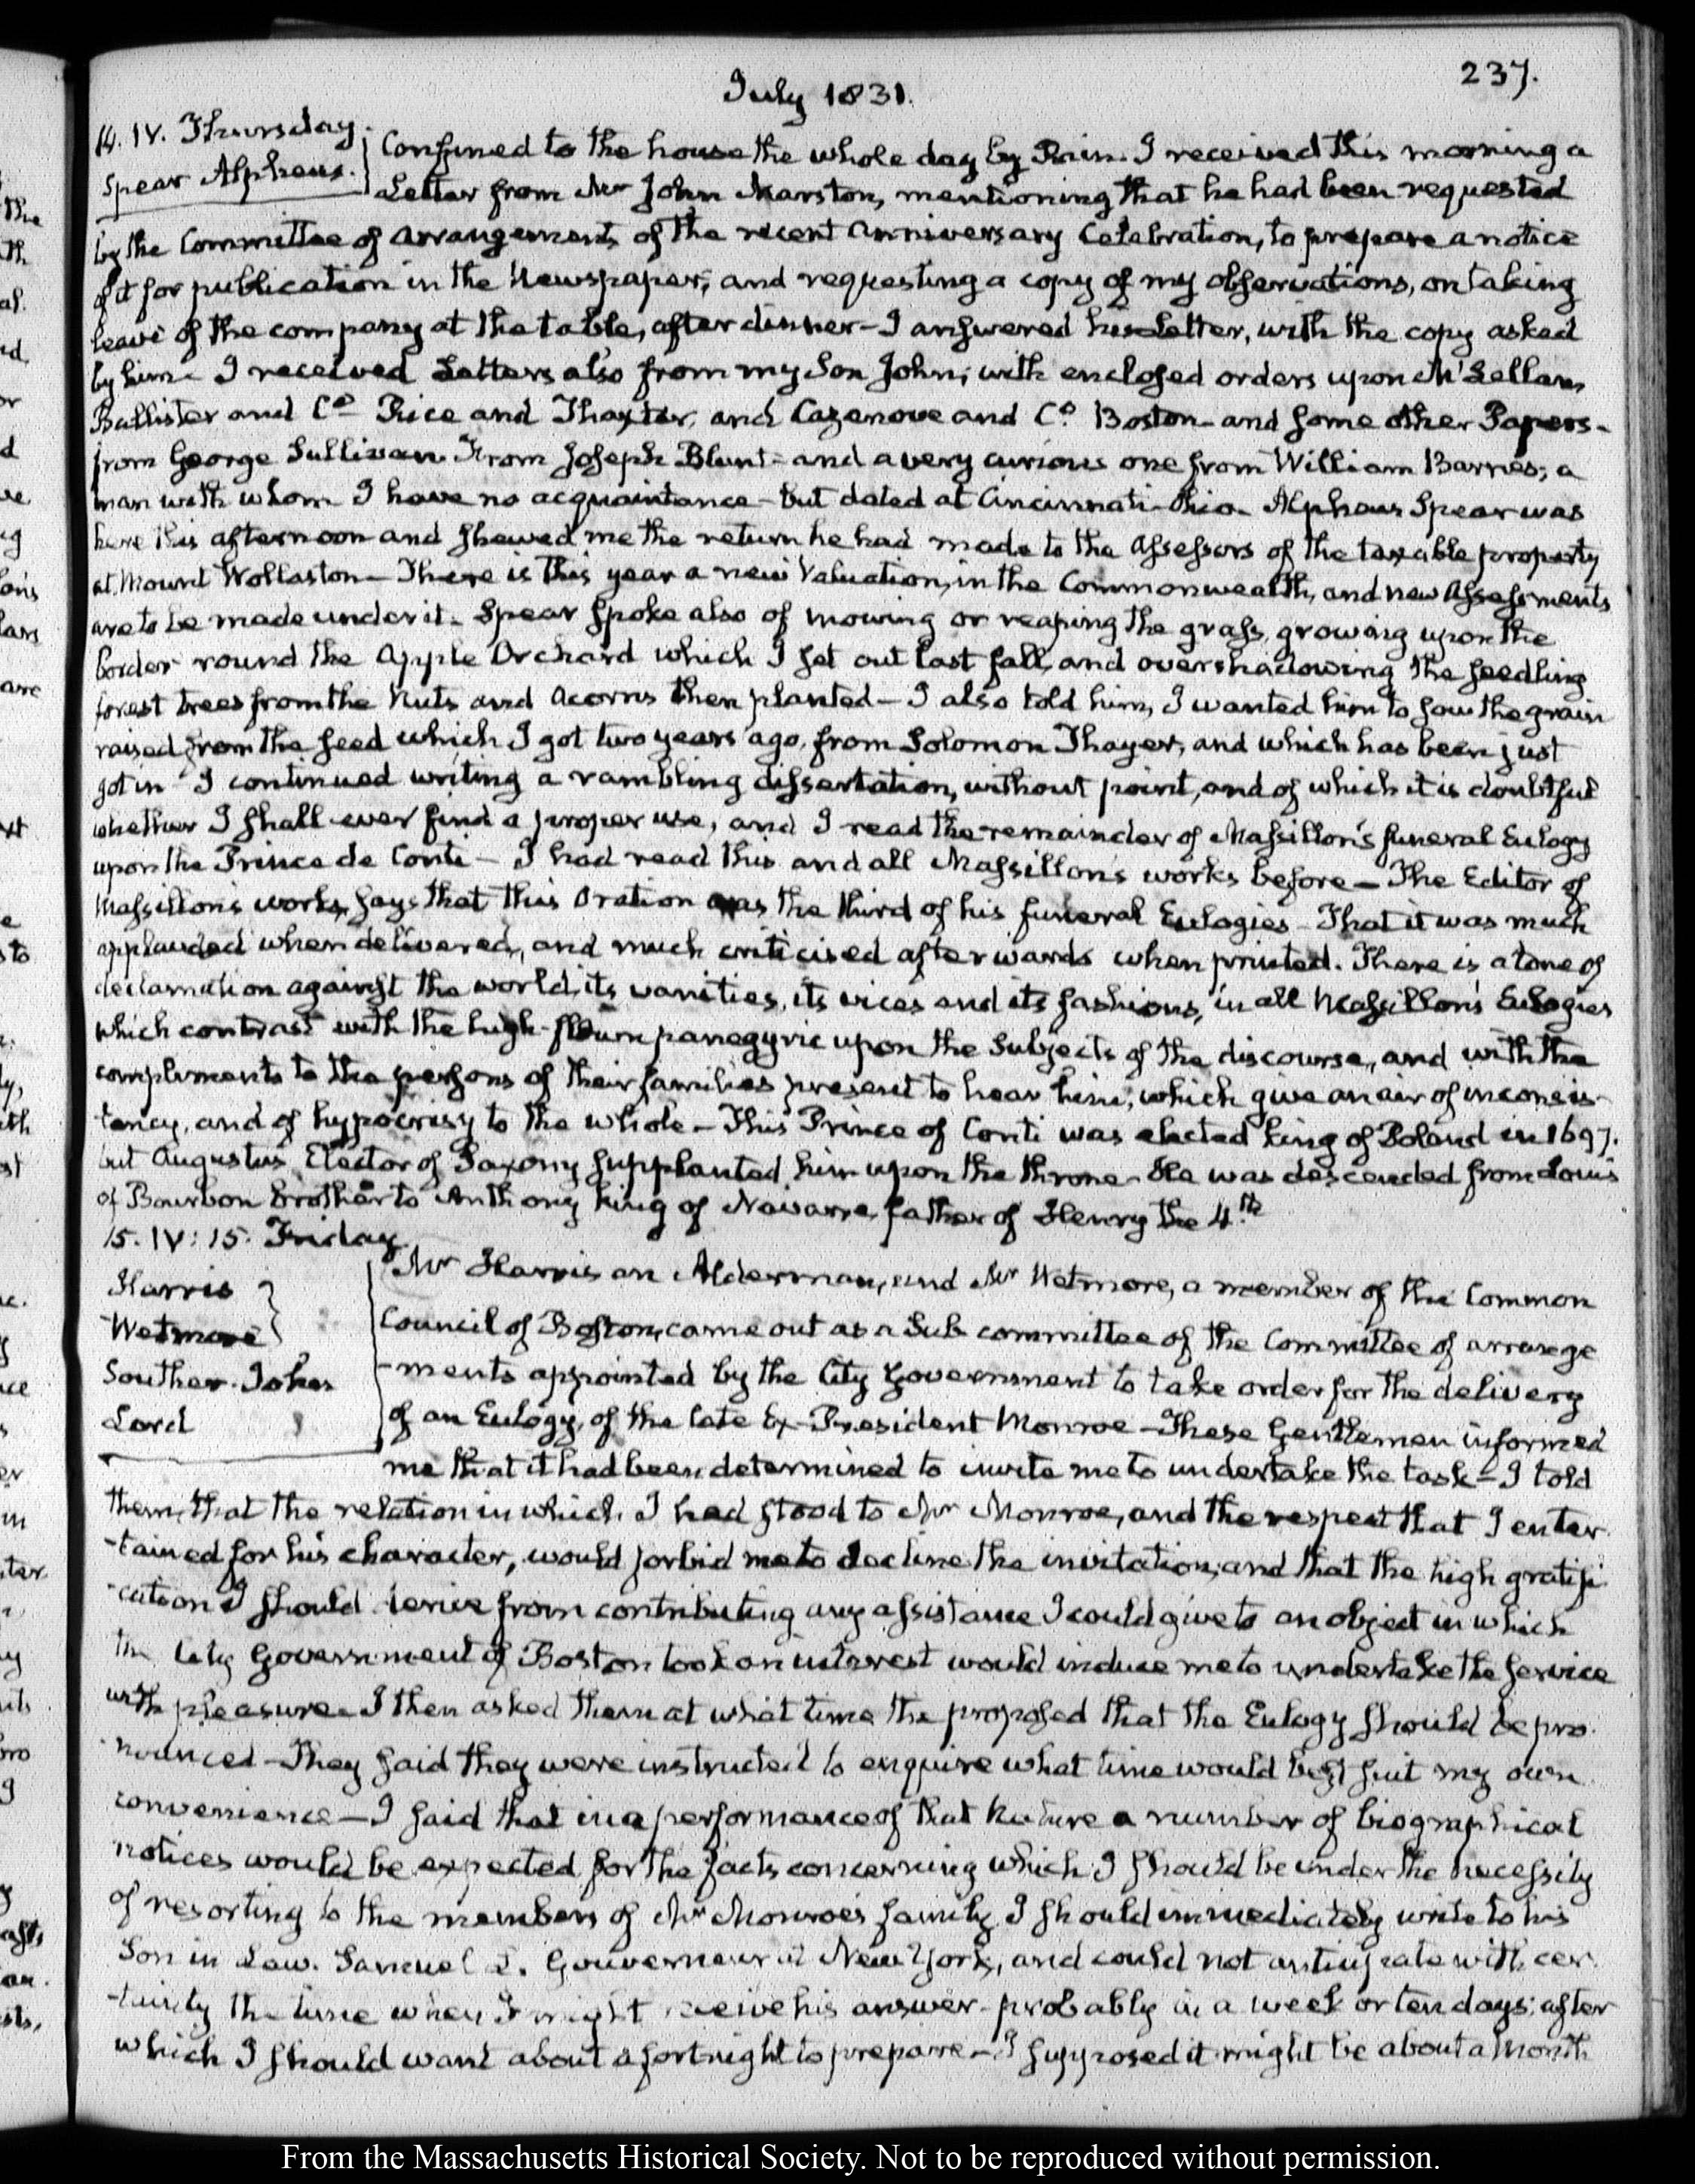 237.
July 1831.
14. IV. Thursday.
Spear Alpheus.
Confined to the house the whole day by Rain. I received this morning a
Letter from Mr John Marston, mentioning that he had been requested
by the Committee of Arrangements of the recent Anniversary Celebration, to prepare a notice
of it for publication in the Newspaper; and requesting a copy of my observations, on taking
leave of the company at the table, after dinner - I answered his Letter, with the copy asked
by him - I received Letters also from my Son John; with enclosed orders upon McLellan,
Ballister and Co. Rice and Thaxter, and Cazenove and Co. Boston - and some other Papers -
from George Sullivan. From Joseph Blunt - and a very curious one from William Barnes; a
man with whom I have no acquaintance - but dated at Cincinnati - Ohio - Alpheus Spear was
here this afternoon and shewed me the return he had made to the Assessors of the taxable property
at Mount Wollaston - There is this year a new Valuation, in the Commonwealth, and new Assessments
are to be made under it. Spear spoke also of mowing or reaping the grass, growing upon the
border round the Apple Orchard which I set out last fall, and overshadowing the seedling
forest trees from the Nuts and Acorns then planted - I also told him, I wanted him to sow the grain
raised from the seed which I got two years ago, from Solomon Thayer, and which has been just
got in - I continued writing a rambling dissertation, without point, and of which it is doubtful
whether I shall ever find a proper use, and I read the remainder of Massillon's funeral Eulogy
upon the Prince de Conti - I had read this and all Massillon's works before - The Editor of
Massillon's works, says that this Oration was the third of his funeral Eulogies - That it was much
applauded when delivered, and much criticised afterwards when printed. There is a tone of
declamation against the world, its vanities, its vices and its fashions, in all Massillon's Eulogies
which contrast with the high-flown panegyric upon the Subjects of the discourse, and with the
compliments to the persons of their families present to hear him, which give an air of inconsis-
tency, and of hypocrisy to the whole - This Prince of Conti was elected King of Poland in 1697.
but Augustus, Elector of Saxony supplanted him upon the throne - He was descended from Louis
of Bourbon brother to Anthony King of Navarre, father of Henry the 4th
15. IV: 15. Friday.
Harris
Wetmore
Souther. John
Lord
Mr Harris an Alderman, and Mr Wetmore, a member of the Common
Council of Boston, came out as a Sub committee of the Committee of arrange
-ments appointed by the City Government to take order for the delivery
of an Eulogy, of the late Ex-President Monroe - These Gentlemen informed
me that it had been determined to invite me to undertake the task - I told
them, that the relation in which I had stood to Mr Monroe, and the respect that I enter
-tained for his character, would forbid me to decline the invitation; and that the high gratifi
-cation I should derive from contributing any assistance I could give to an object in which
the City Government of Boston took an interest would induce me to undertake the service
with pleasure. I then asked them at what time the proposed that the Eulogy should be pro
-nounced - They said they were instructed to enquire what time would best suit my own
convenience - I said that in a performance of that Nature a number of biographical
notices would be expected for the facts concerning which I should be under the necessity
of resorting to the members of Mr Monroe's family. I should immediately write to his
Son in Law. Samuel L. Gouverneur at New York, and could not anticipate with cer
-tainty the time when I might receive his answer - probably in a week or ten days; after
which I should want about a fortnight to prepare - I supposed it might be about a Month
From the Massachusetts Historical Society. Not to be reproduced without permission.